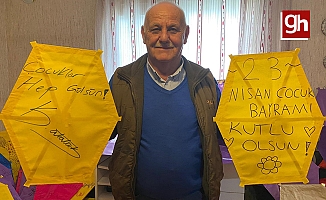 Çocuklar
Hep Gülsün!
K. Atatürk
~23~
NİSAN ÇOCUK
BAYRAMI
KUTLU
OLSUN!
gh